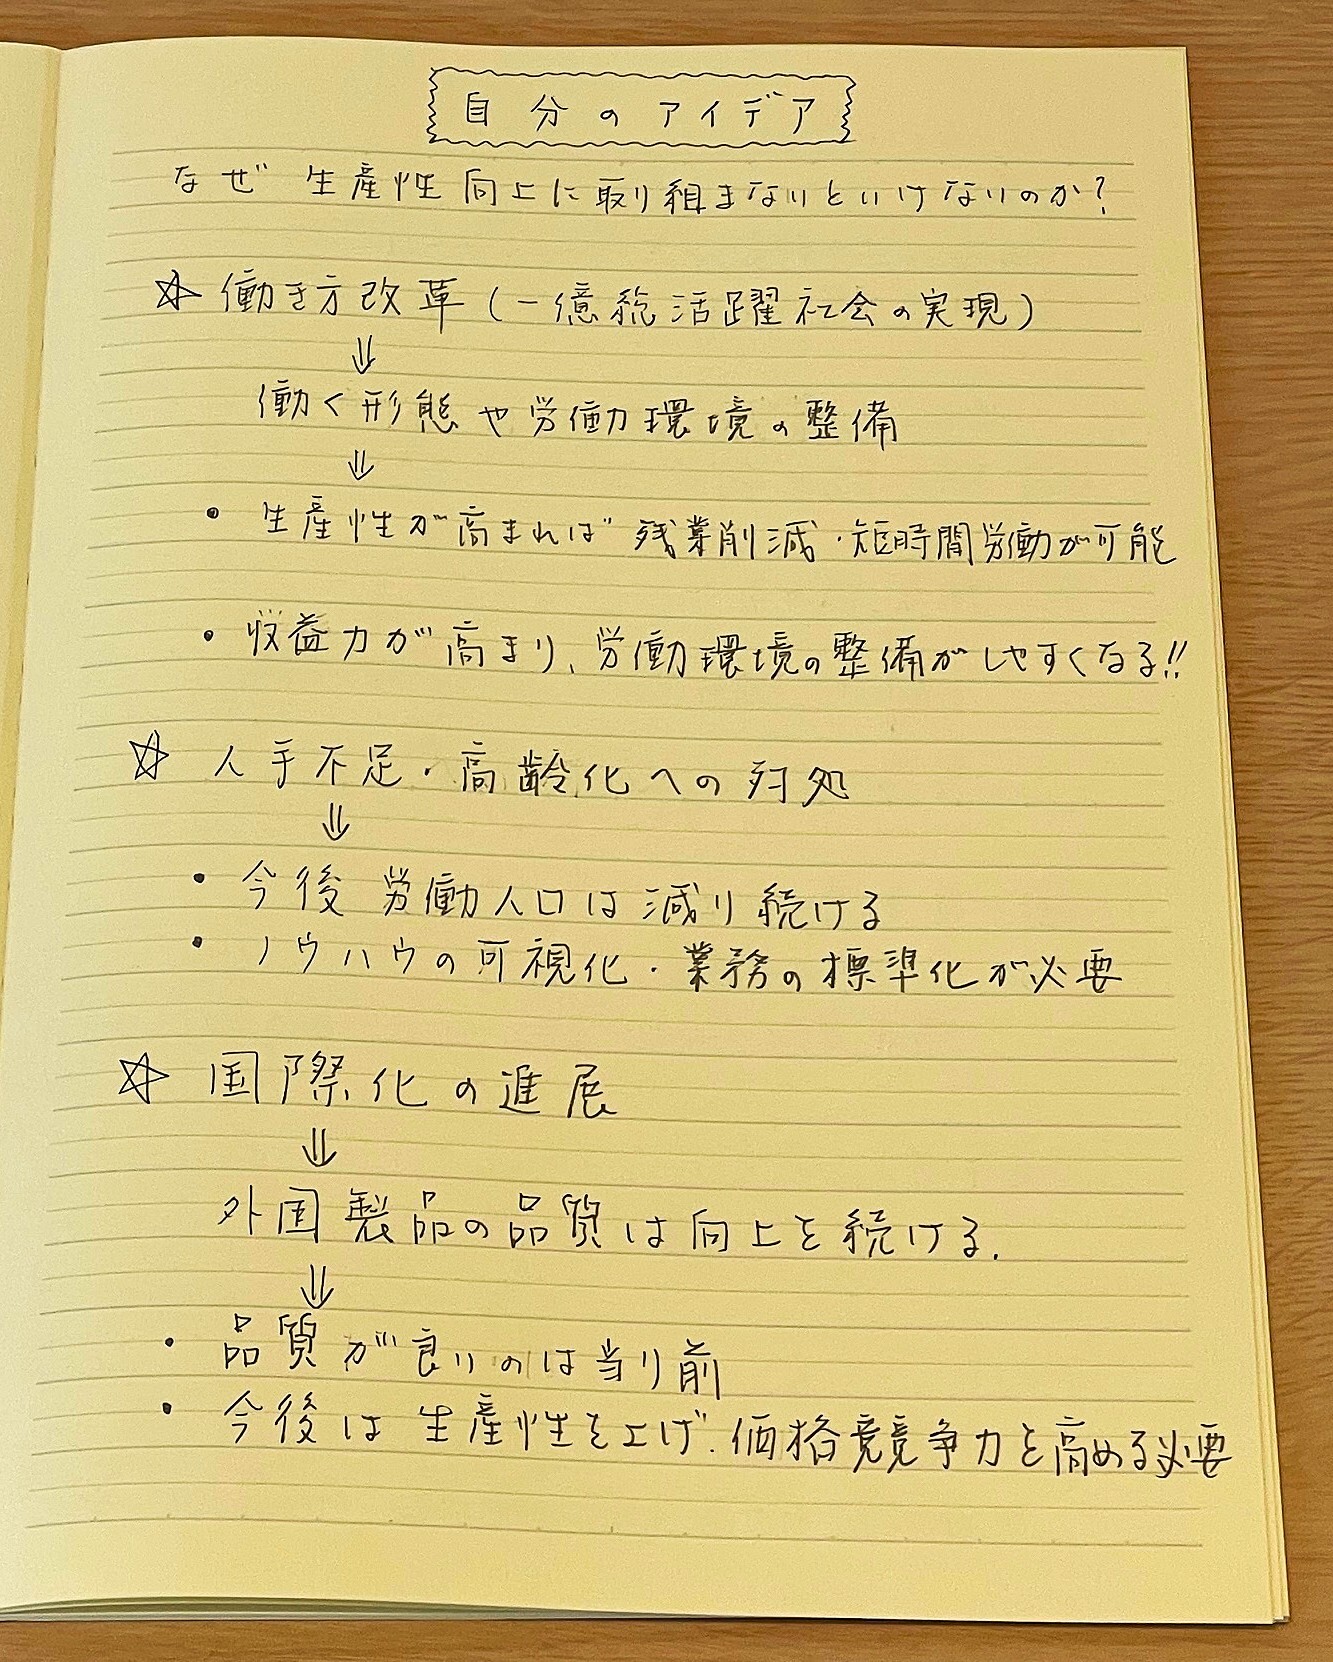 自分のアイデア
なぜ生産性向上に取り組まないといけないのか?
☆ 働き方改革(一億総活躍社会の実現)
⇓
働く形態や労働環境の整備
⇓
・生産性が高まれば残業削減・短時間労働が可能
・収益力が高まり、労働環境の整備がしやすくなる!!
☆ 人手不足・高齢化への対処
⇓
・今後労働人口は減り続ける
・ノウハウの可視化・業務の標準化が必要
☆ 国際化の進展
⇓
外国製品の品質は向上を続ける.
⇓
・品質が良いのは当り前
・今後は生産性を上げ、価格競争力を高める必要